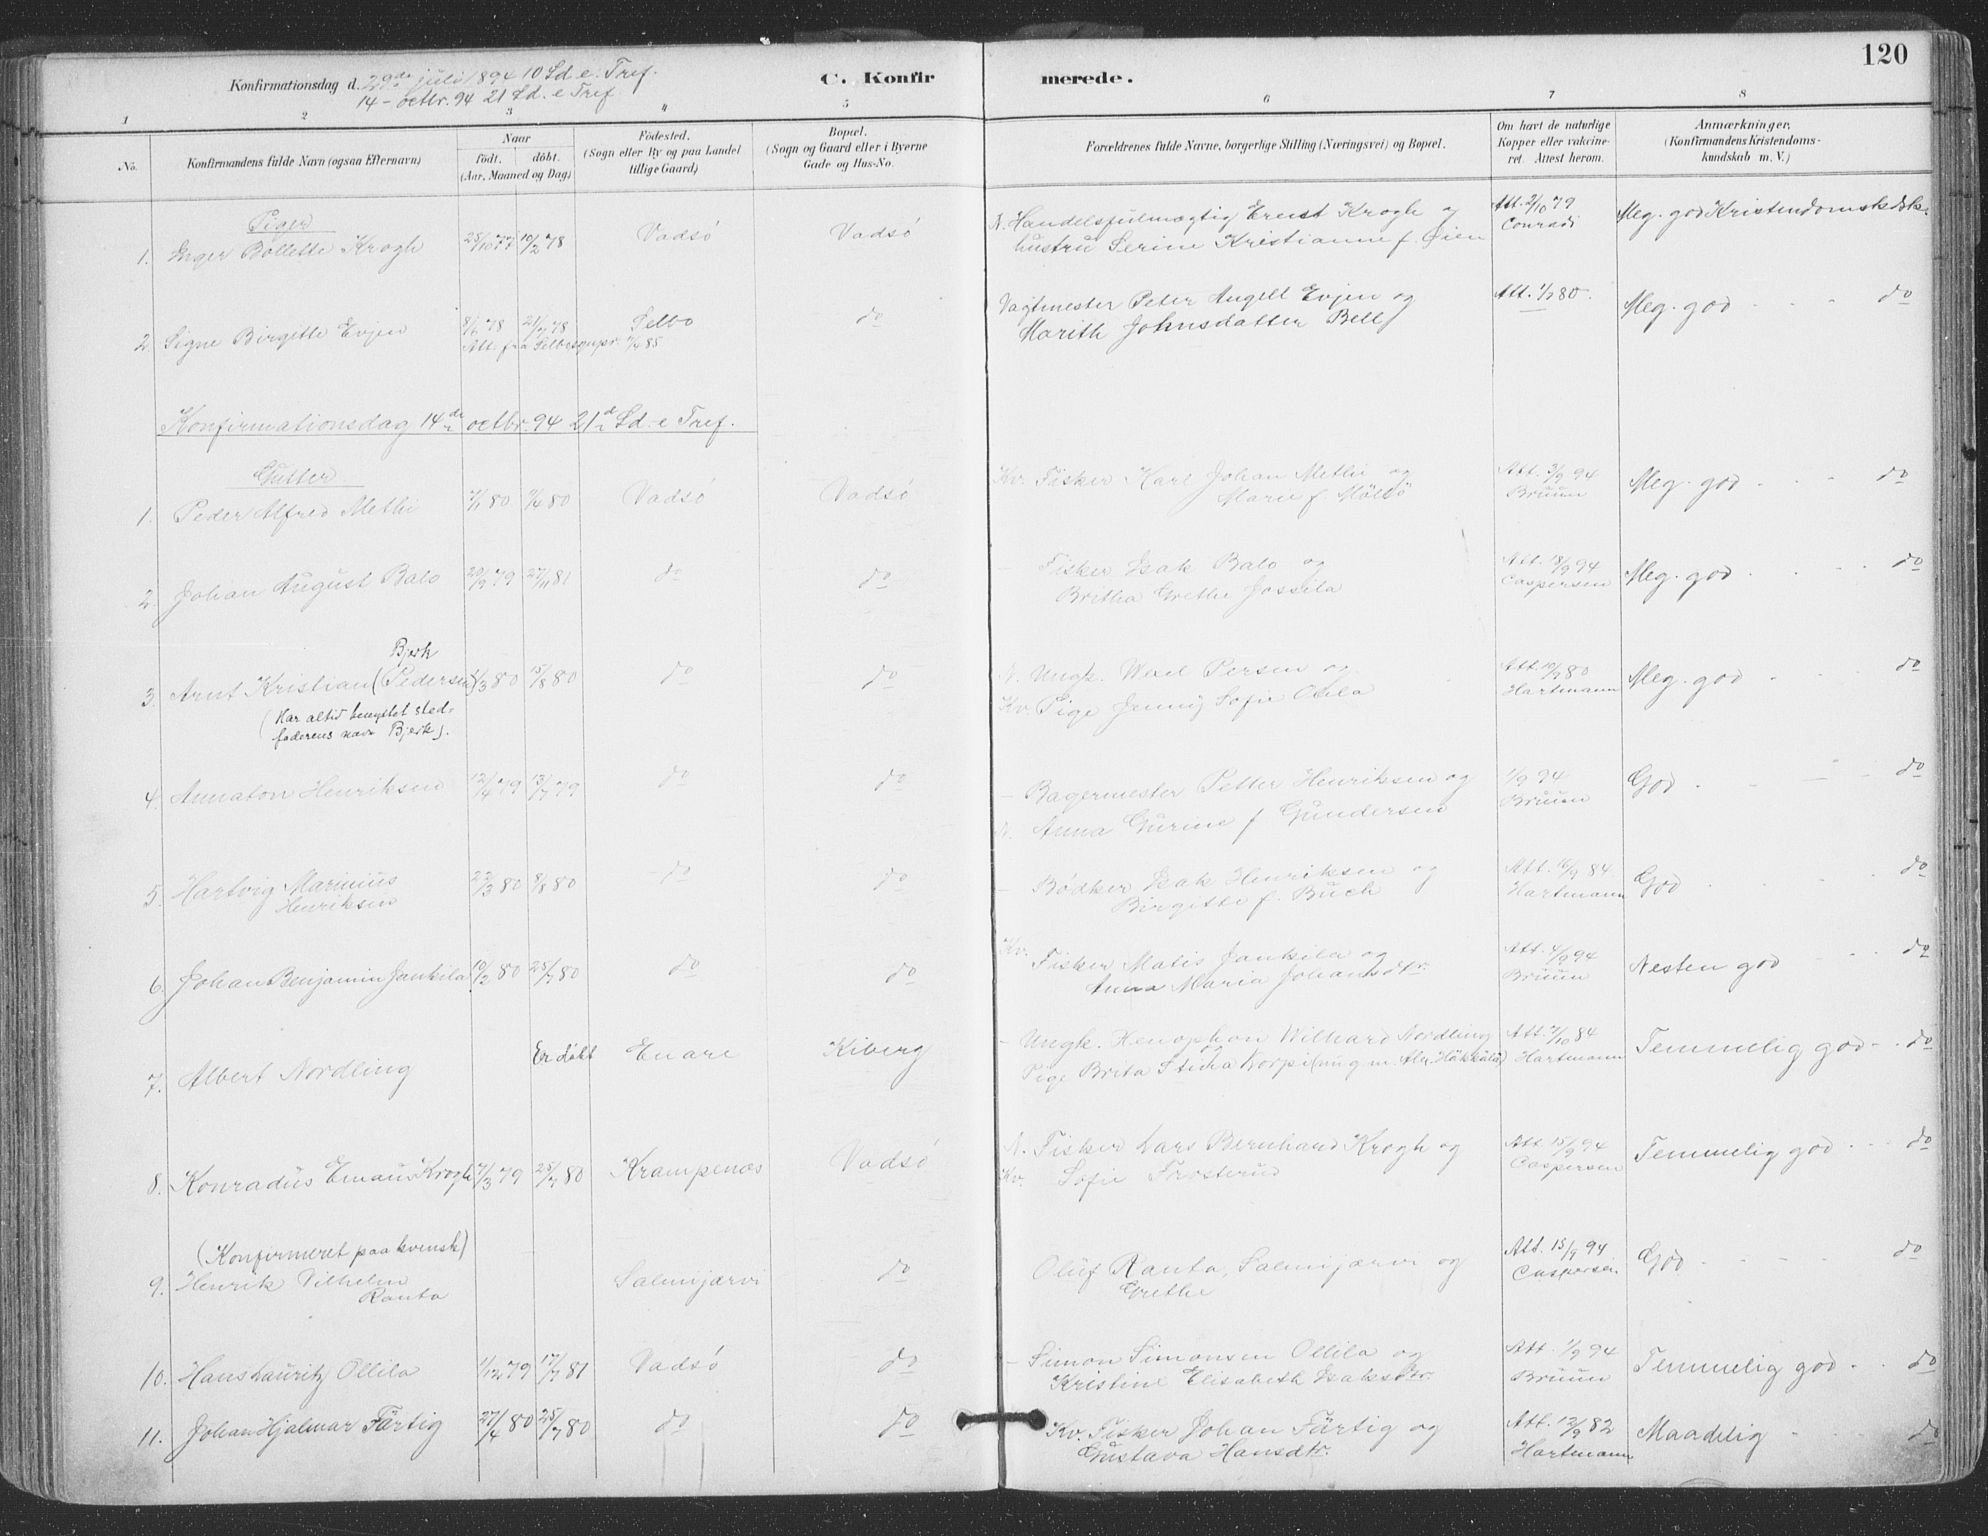 120
Konfirmationsdag d. 29de juli 1894 10 Sd. e. Tref.
14 - octbr. 94 21 Sd. e Tref
C. Konfirmerede.
1 2 3 4 5 6 7 8
No. Konfirmandens fulde Navn (ogsaa Efternavn) Naar födt. döbt. (Aar, Maaned og Dag) Födested. (Sogn eller By og paa Landet tillige Gaard) Bopæl. (Sogn og Gaard eller i Byerne Gade og Hus-No. Forældrenes fulde Navne, borgerlige Stilling (Næringsvei) og Bopæl. Om havt de naturlige Kopper eller vakcineret. Attest herom. Anmærkninger. (Konfirmandens Kristendomskundskab m. V.)
Piger
1. Inger Bollette Krogh 28/10 77 10/2 78 Vadsö Vadsö N. Handelsfulmægtig Ernst Krogh og Att. 2/10 79 Meg. god Kristendomskdsk.
hustru Serine Kristianne f. Øien Conradi
2. Signe Birgitte Evjen 8/6 78 21/7 78 Selbo do Vagtmester Peter Angell Evjen og Att. 1/7 80. Meg. god - - - do
Att. fra Selbo sgnpr. 85 Marith Johnsdatter Bell
Konfirmationsdag 14de octbr. 94 21de Sd. e Tref.
Gutter
1. Peder Alfred Methi 7/1 80 7/4 80 Vadsö Vadsö Kv. Fisker Karl Johan Methi og Att. 3/9 94 Meg. god - - - do
Marie f. Bruun
2. Johan August Balo 20/9 79 27/11 81 do do - Fisker Isak Balo og Att. 18/9 94 Meg. god - - - do
Britha Grethe Jossila Caspersen
Bjerk
3. Arnt Kristian (Pedersen) 1/3 80 15/8 80 do do N. Ungk. Persen og Att. 10/7 80 Meg. god - - - do
(Har altid benyttet sted- Kv. Pige Jenny Sofie Hartmann
faderens navn Bjerk).
4. Annaton Henriksen 12/4 79 13/7 79 do do - Bagermester Petter Henriksen og 1/9 94 God - - - do
N. Anna Gurine f Gundersen Bruun
5. Hartvig Marinius 22/3 80 8/8 80 do do - Bödker Isak Henriksen og Att. 16/9 84. God - - do
Henriksen Birgitte f. Buch Hartmann
6. Johan Benjamin Jankila 10/2 80 25/7 80 do do Kv. Fisker Matis Jankila og Att. 4/9 94 Nesten god - - - do
Anna Maria Johansdtr. Bruun
7. Albert Nordling Er döbt Enare Kiberg - Ungk. Henophon Wilhard Nordling Att. 7/10 84 Temmelig god - - do
og Pige Brita Stina Korpi Hartmann
8. Konradus Emaus Krogh 7/3 79 25/7 80 Krampenæs Vadsö N. Fisker Lars Bernhard Krogh og Att. 15/9 94 Temmelig god - - - do
Kv. Sofie Frosterud Caspersen
(Konfirmeret paa kvensk)
9. Henrik Vilhelm Salmijærvi do Oluf Ranta, Salmijærvi og Att. 15/9 94 God - - - do
Ranta Grethe Caspersen
10. Hans Lauritz Ollila 1/12 79 17/7 81 Vadsö do - Simon Simonsen Ollila og Att. 1/9 94 Temmelig god - - do
Kristine Elisabeth Isaksdtr. Bruun
11. Johan Hjalmar Färtig 27/4 80 25/7 80 do do Kv. Fisker Johan Färtig og Att. 12/9 82 Maadelig - - do
Gustava Hansdtr. Hartmann